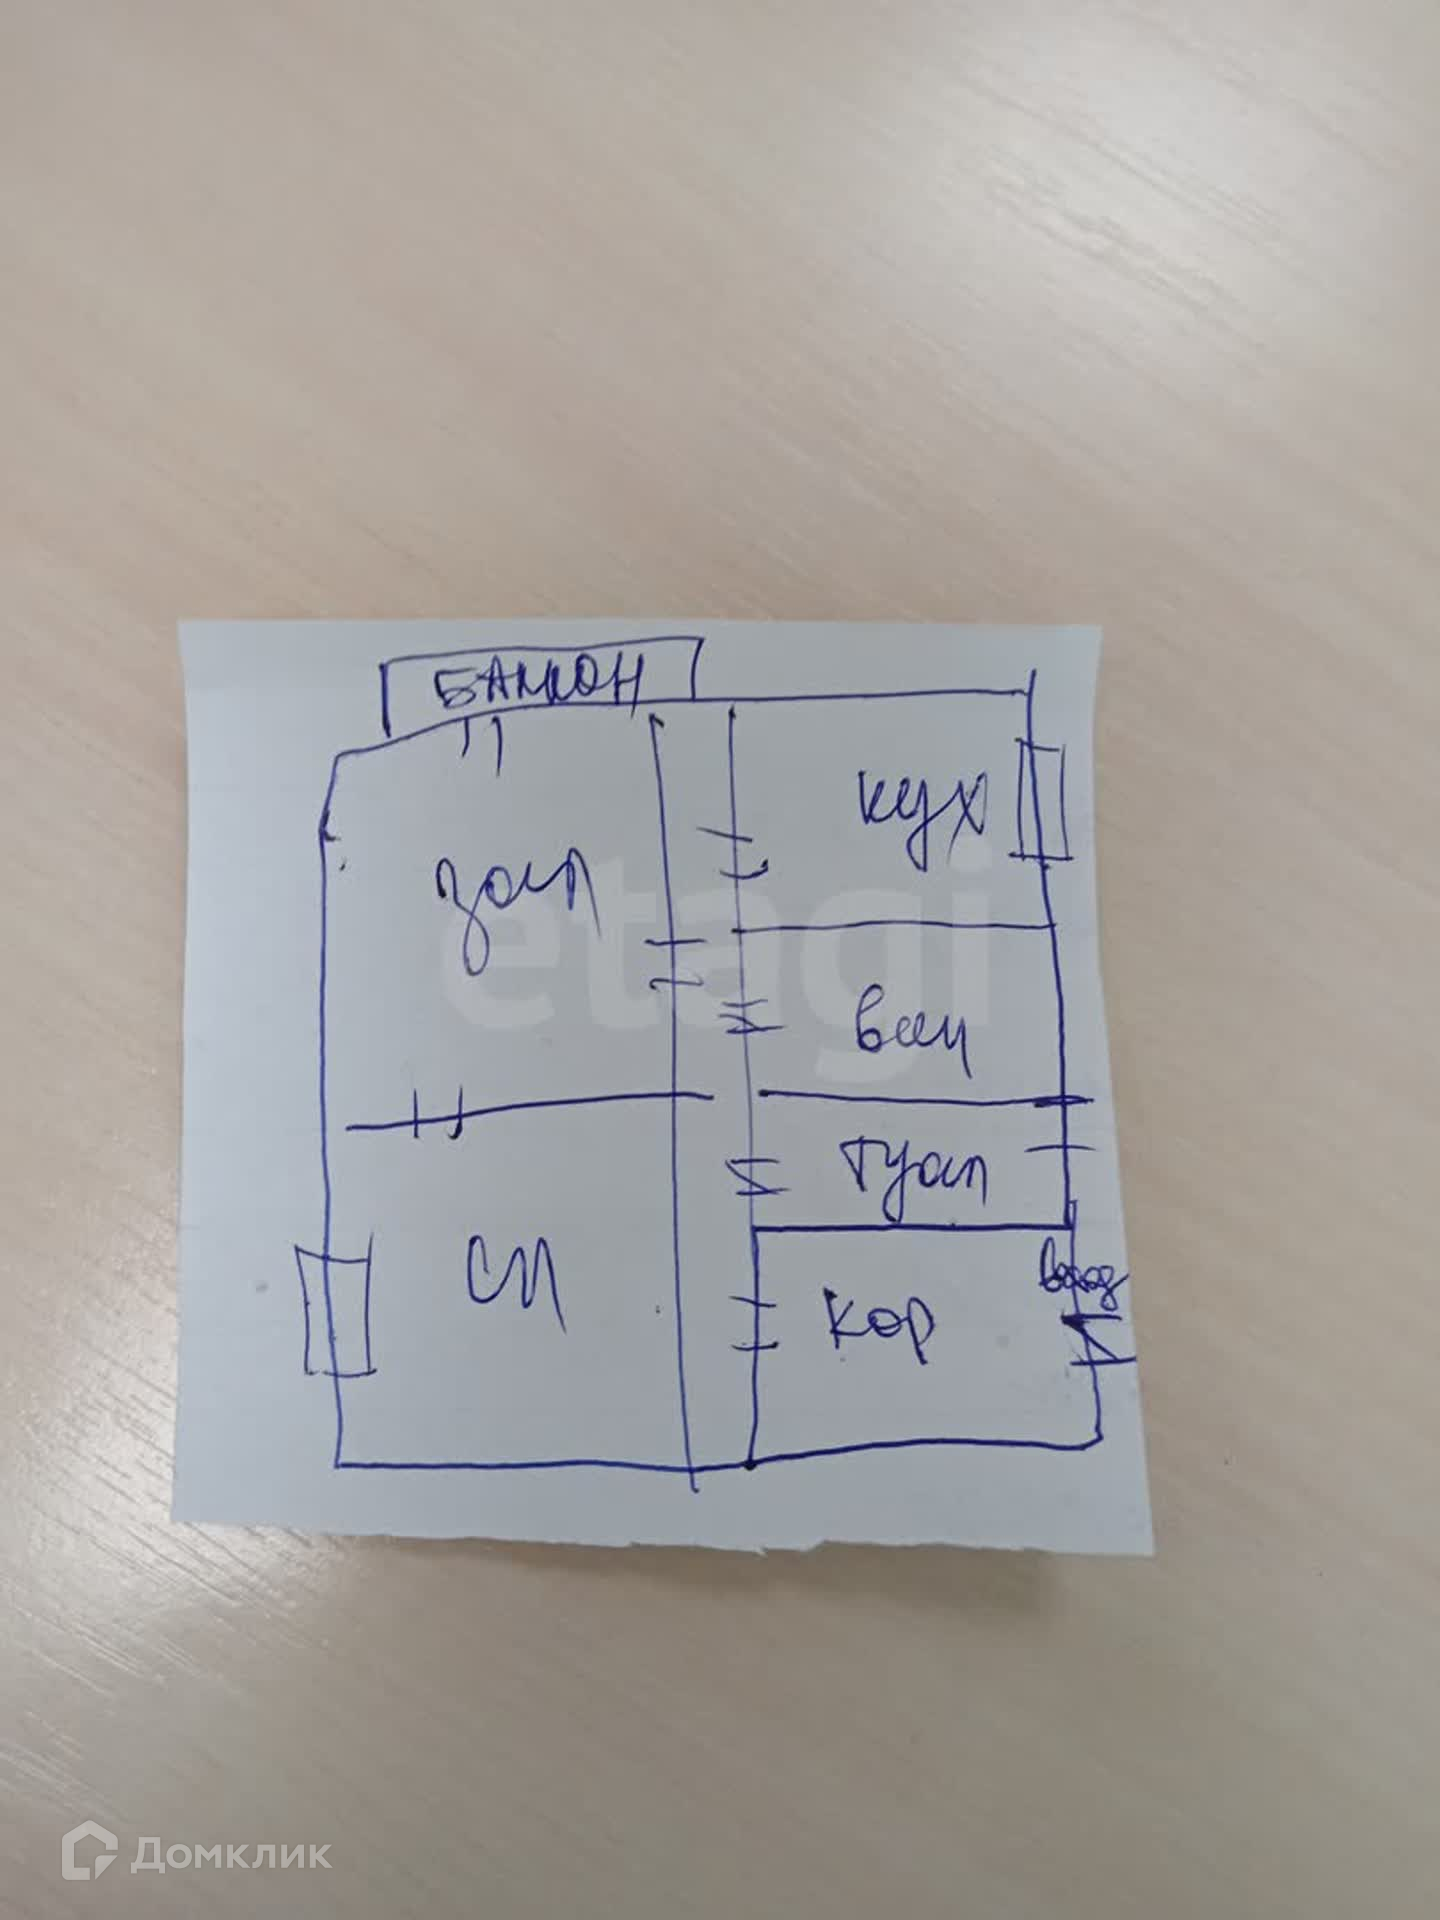 БАЛКОН
кух
зал
ван
туал
сп
вход
кор
etagi
Домклик